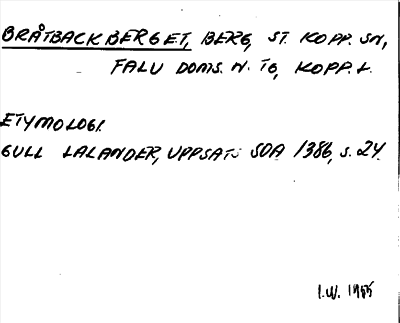 BRÅTBACKBERGET, BERG, ST. KOPP. SN,
FALU DOMS. N. TG, KOPP. L.
ETYMOLOGI.
GULL LALANDER, UPPSATS SOA 1386, S. 24.
I.W. 1985